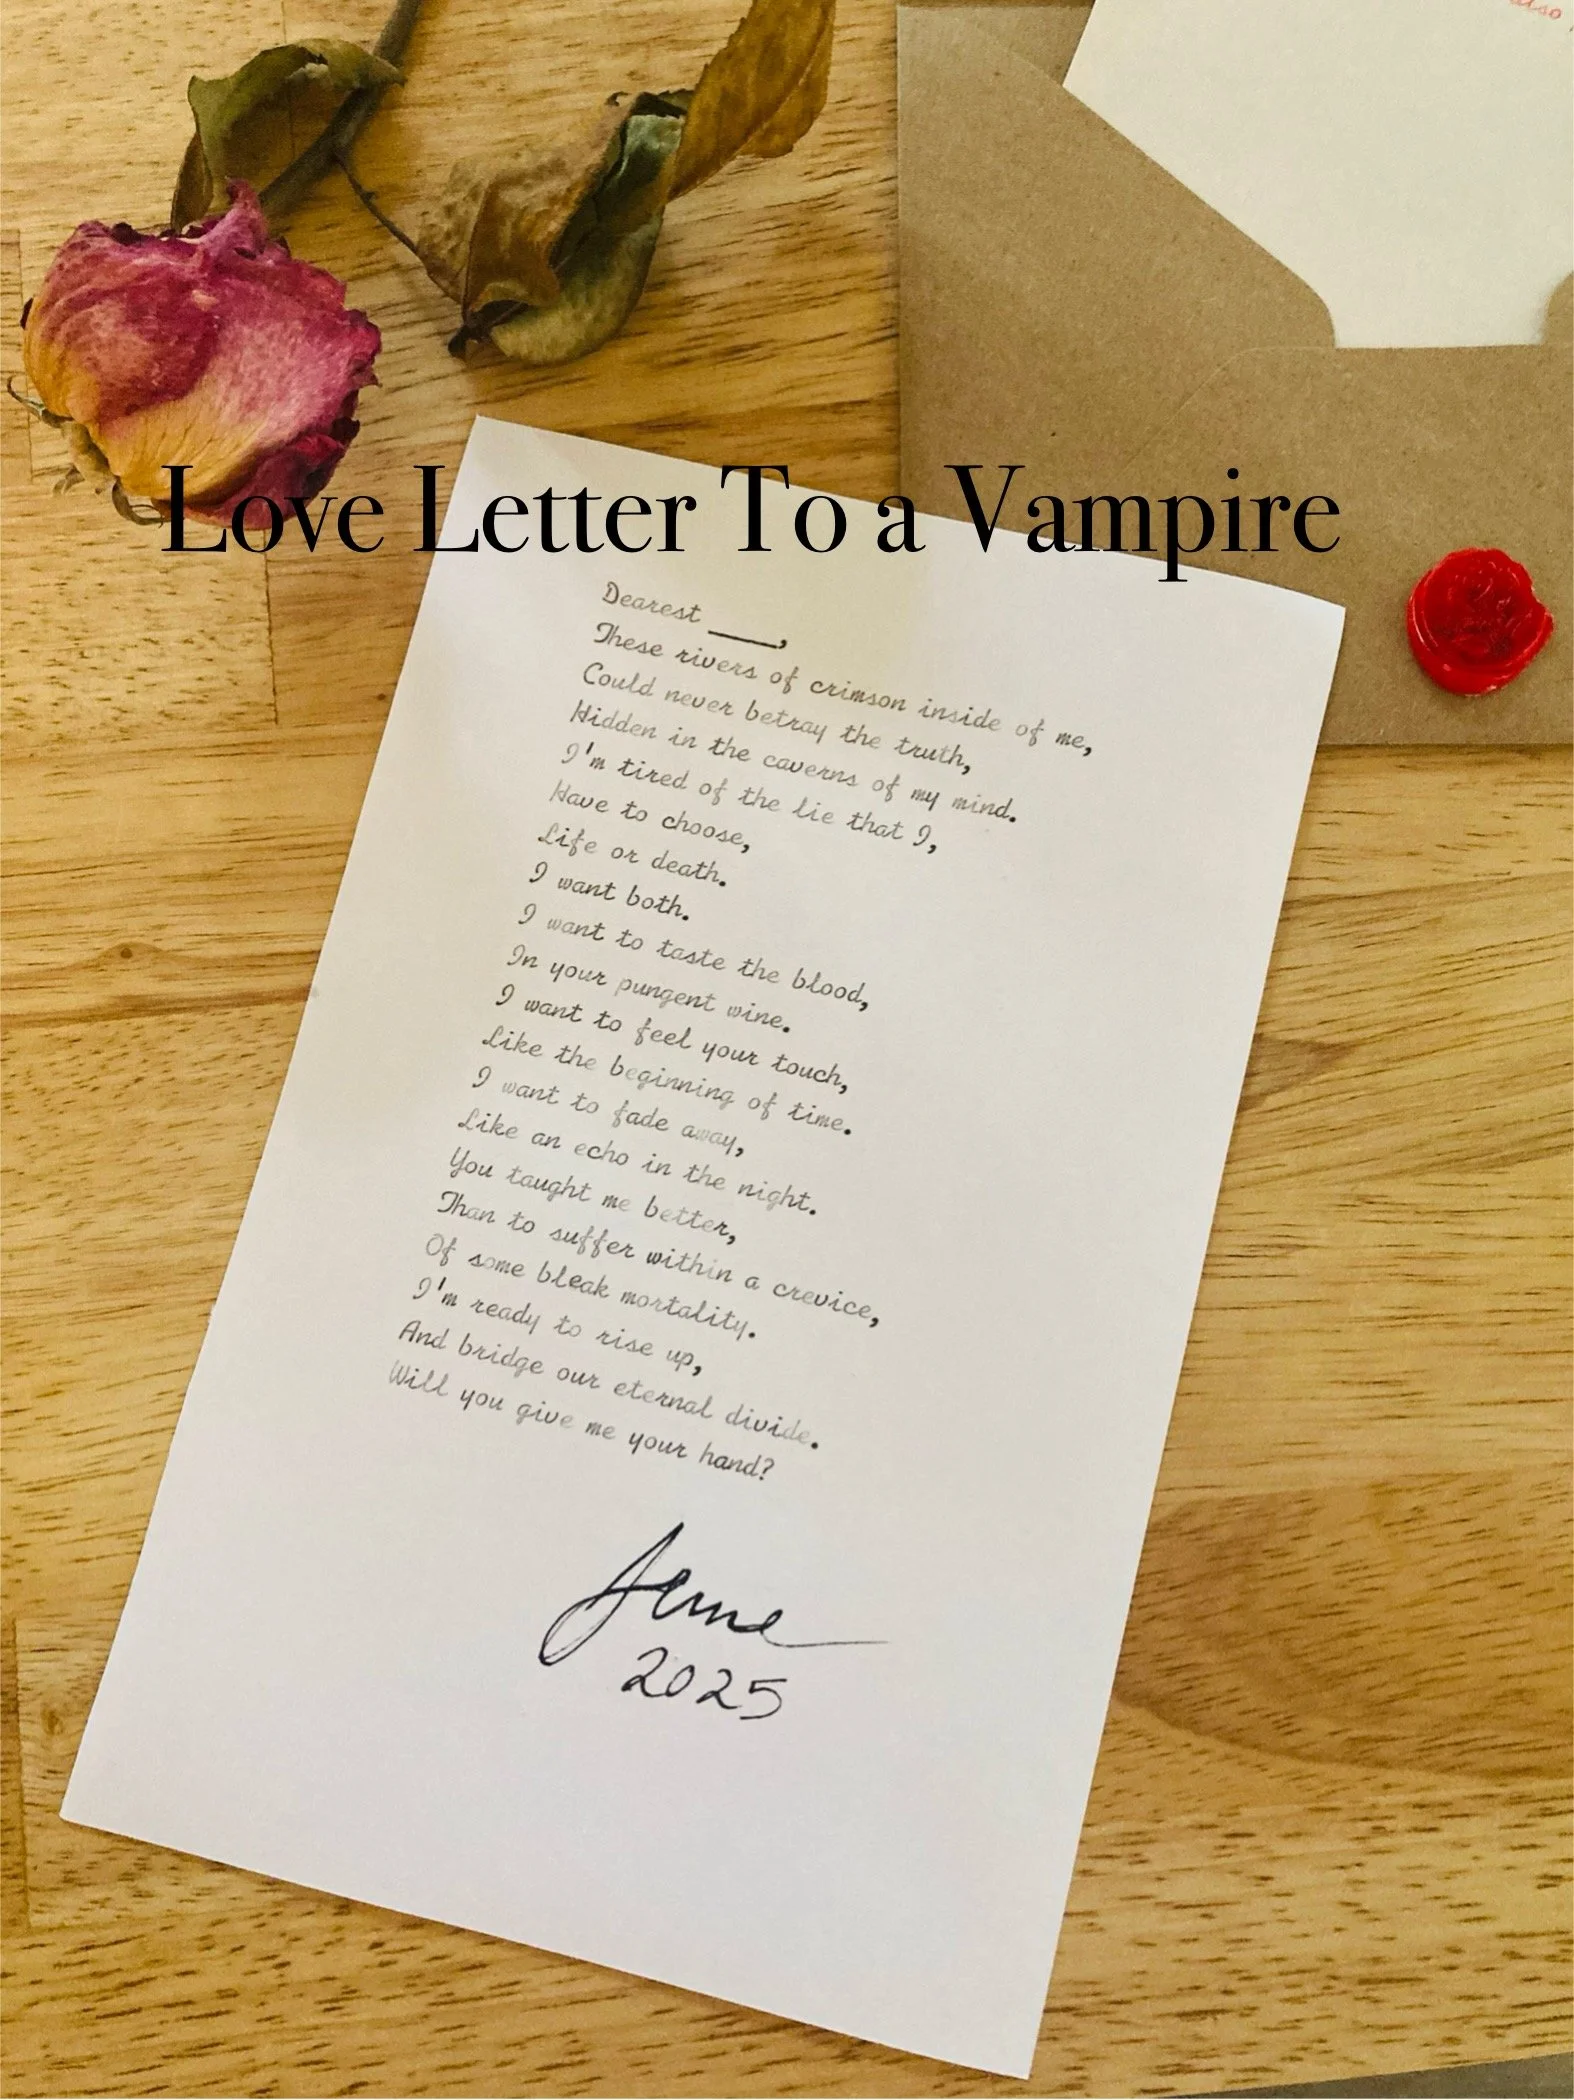 also
Love Letter To a Vampire
Dearest ____,
These rivers of crimson inside of me,
Could never betray the truth,
Hidden in the caverns of my mind.
I'm tired of the lie that I,
Have to choose,
Life or death.
I want both.
I want to taste the blood,
In your pungent wine.
I want to feel your touch,
Like the beginning of time.
I want to fade away,
Like an echo in the night.
You taught me better,
Than to suffer within a crevice,
Of some bleak mortality.
I'm ready to rise up,
And bridge our eternal divide.
Will you give me your hand?
2025